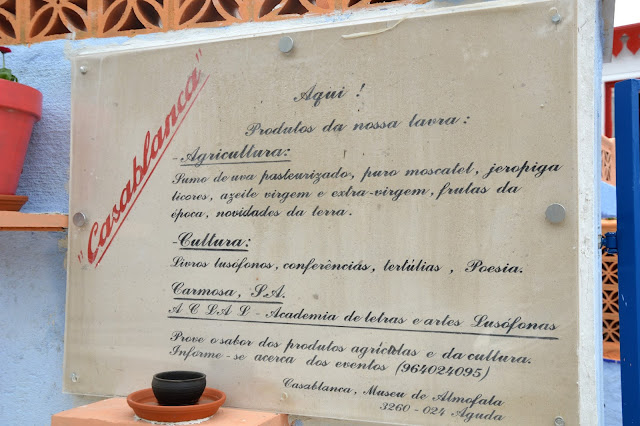 "Casablanca"
Aqui !
Produtos da nossa lavra :
-Agricultura:
Sumo de uva pasteurizado, puro moscatel, jeropiga
licores, azeite virgem e extra-virgem, frutas da
época, novidades da terra.
-Cultura:
Livros lusófonos, conferências, tertúlias , Poesia.
Carmosa, S.A.
A C L A L - Academia de letras e artes Lusófonas
Prove o sabor dos produtos agrícolas e da cultura.
Informe-se acerca dos eventos (964024095)
Casablanca, Museu de Almofala
3260 - 024 Aguda